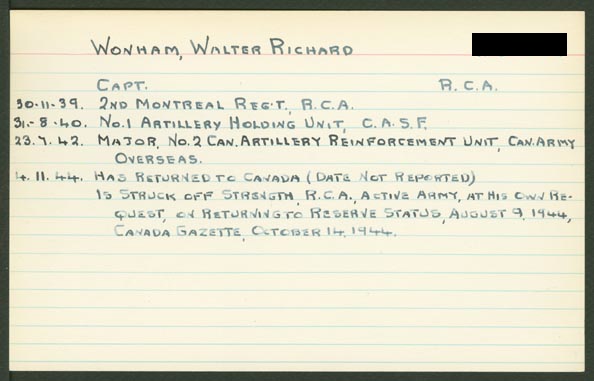 WONHAM, WALTER RICHARD
CAPT. R.C.A.
30-11-39. 2ND MONTREAL REG'T., R.C.A.
31-8-40. NO.1 ARTILLERY HOLDING UNIT, C.A.S.F.
23.7.42. MAJOR, NO.2 CAN. ARTILLERY REINFORCEMENT UNIT, CAN. ARMY
OVERSEAS.
4.11.44. HAS RETURNED TO CANADA (DATE NOT REPORTED)
IS STRUCK OFF STRENGTH, R.C.A., ACTIVE ARMY, AT HIS OWN RE-
QUEST, ON RETURNING TO RESERVE STATUS, AUGUST 9, 1944,
CANADA GAZETTE, OCTOBER 14, 1944.